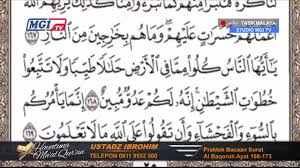 MGI TV
TASIKMALAYA
STUDIO MGI TV
كَرَّةً فَنَتَبَرَّأَ مِنْهُمْ كَمَا تَبَرَّءُوا۟ مِنَّا كَذَٰلِكَ يُرِيهِمُ ٱللَّهُ
أَعْمَٰلَهُمْ حَسَرَٰتٍ عَلَيْهِمْ وَمَا هُم بِخَٰرِجِينَ مِنَ ٱلنَّارِ ١٦٧
يَٰٓأَيُّهَا ٱلنَّاسُ كُلُوا۟ مِمَّا فِى ٱلْأَرْضِ حَلَٰلًا طَيِّبًا وَلَا تَتَّبِعُوا۟
خُطُوَٰتِ ٱلشَّيْطَٰنِ إِنَّهُۥ لَكُمْ عَدُوٌّ مُّبِينٌ ١٦٨ إِنَّمَا يَأْمُرُكُم
بِٱلسُّوٓءِ وَٱلْفَحْشَآءِ وَأَن تَقُولُوا۟ عَلَى ٱللَّهِ مَا لَا تَعْلَمُونَ
USTADZ IBROHIM
TELEPON 0811 9552 500
Praktek Bacaan Surat
Al Baqoroh Ayat 168-173